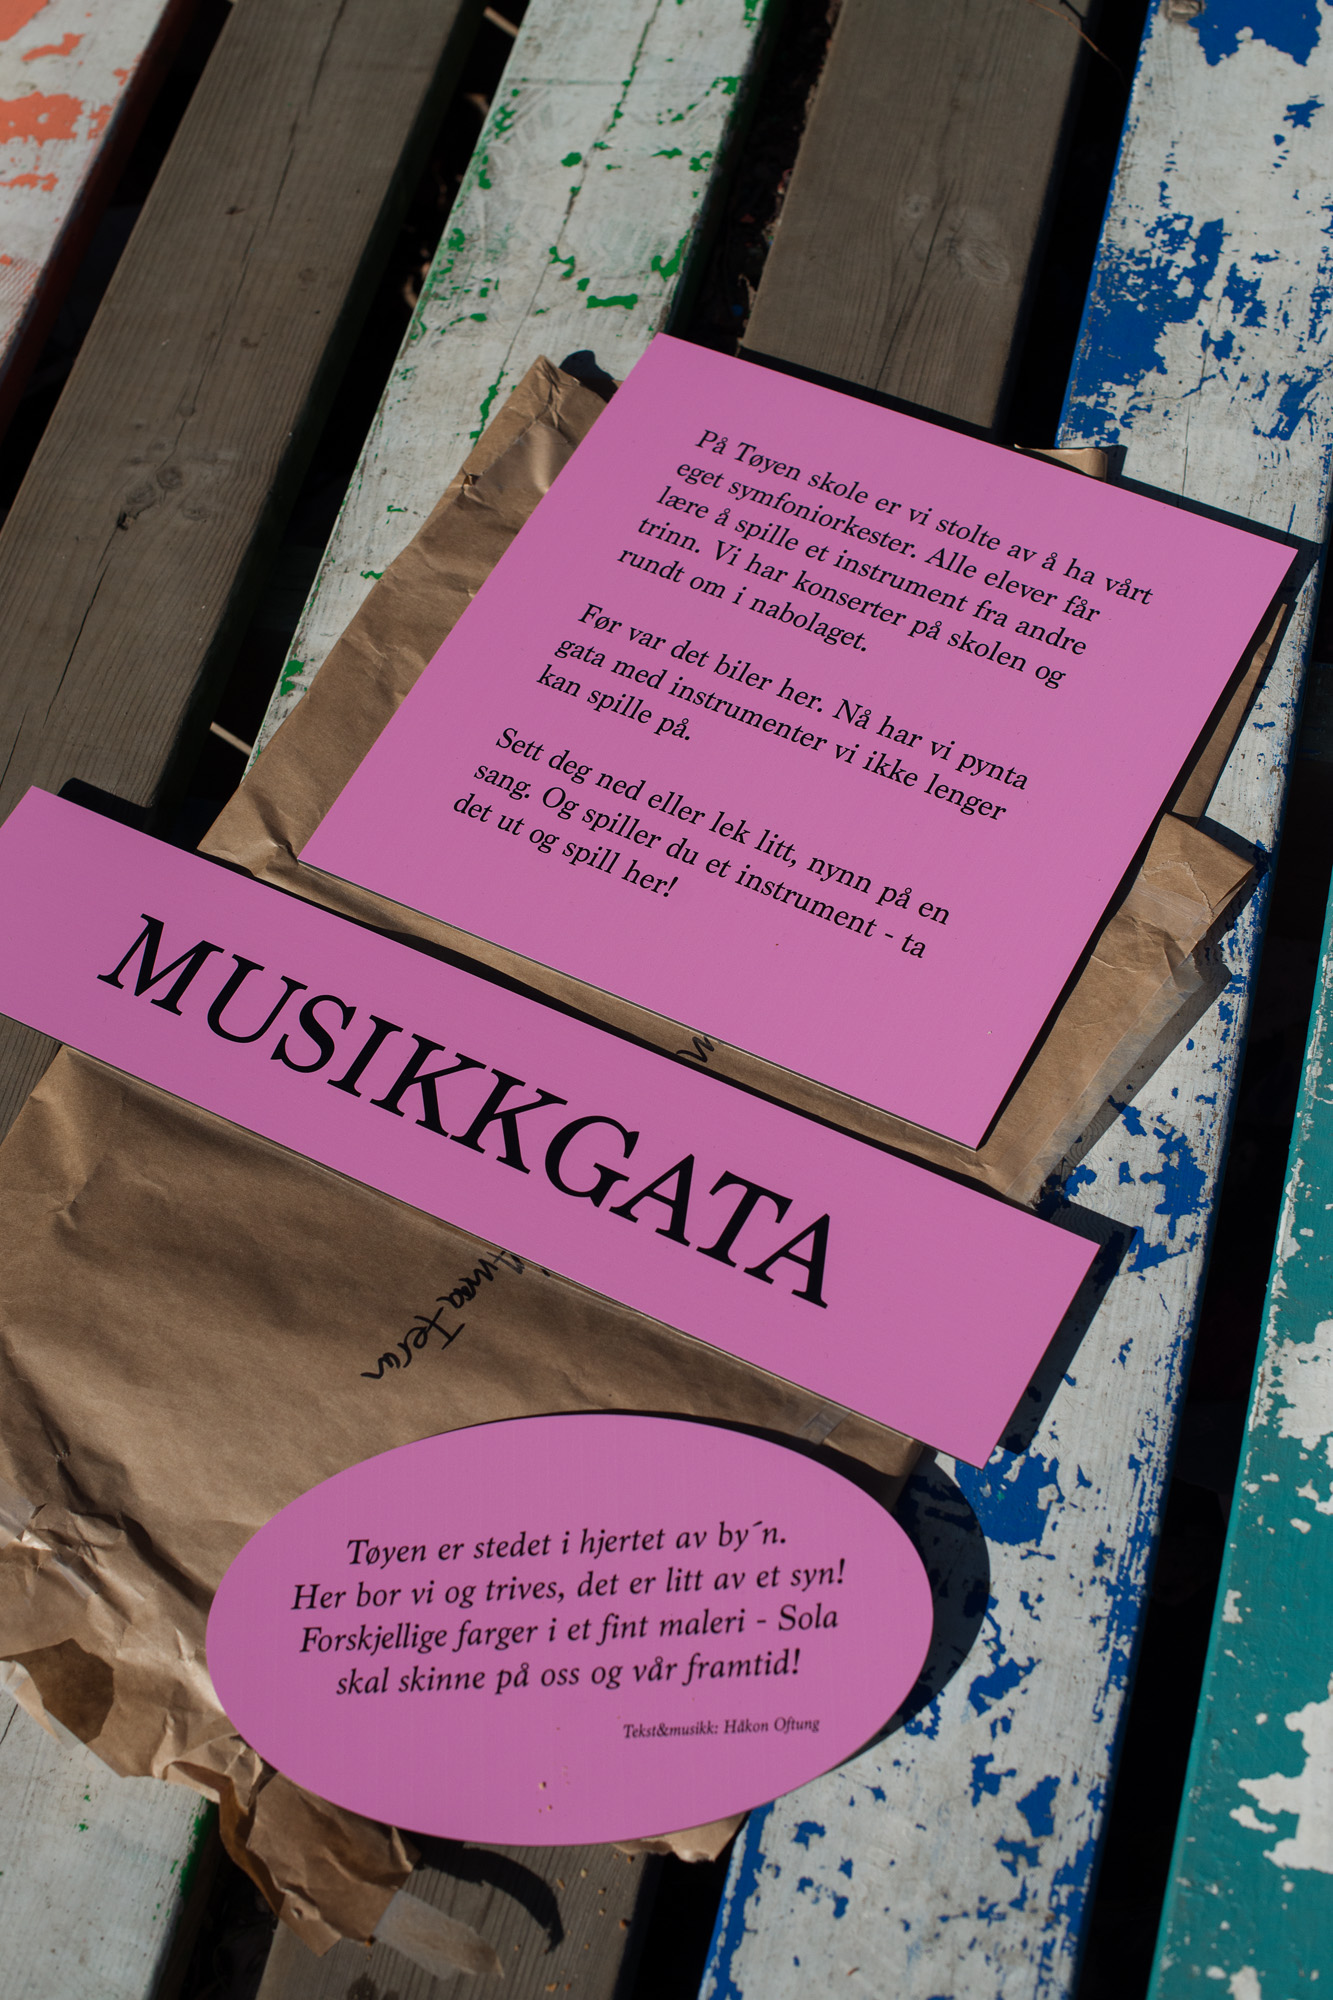 På Tøyen skole er vi stolte av å ha vårt
eget symfoniorkester. Alle elever får
lære å spille et instrument fra andre
trinn. Vi har konserter på skolen og
rundt om i nabolaget.
Før var det biler her. Nå har vi pynta
gata med instrumenter vi ikke lenger
kan spille på.
Sett deg ned eller lek litt, nynn på en
sang. Og spiller du et instrument - ta
det ut og spill her!
MUSIKKGATA
Tøyen er stedet i hjertet av by´n.
Her bor vi og trives, det er litt av et syn!
Forskjellige farger i et fint maleri - Sola
skal skinne på oss og vår framtid!
Tekst&musikk: Håkon Oftung